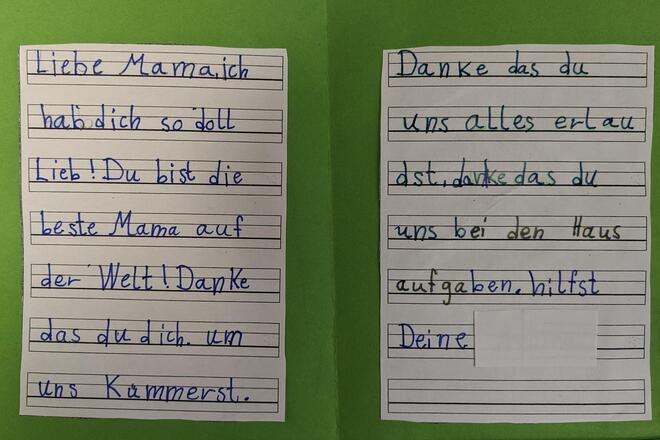 Liebe Mama, ich
hab dich so doll
Lieb! Du bist die
beste Mama auf
der Welt! Danke
das du dich. um
uns Kümmerst.
Danke das du
uns alles erlau
dst, danke das du
uns bei den Haus
aufgaben. hilfst
Deine